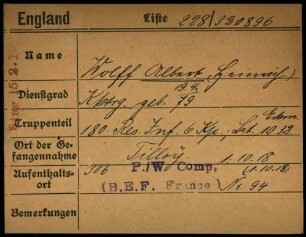 England Liste 228/330896
Name Wolff Albert (Heinrich)
Dienstgrad
geb. 79
Truppenteil 180. Res Inf. 6 Kp.
Ort der Gefangennahme Tilloy 1.10.18
Aufenthaltsort 506 P.W. Comp. (1.10.18)
(B.E.F. France) Nr. 94
Bemerkungen